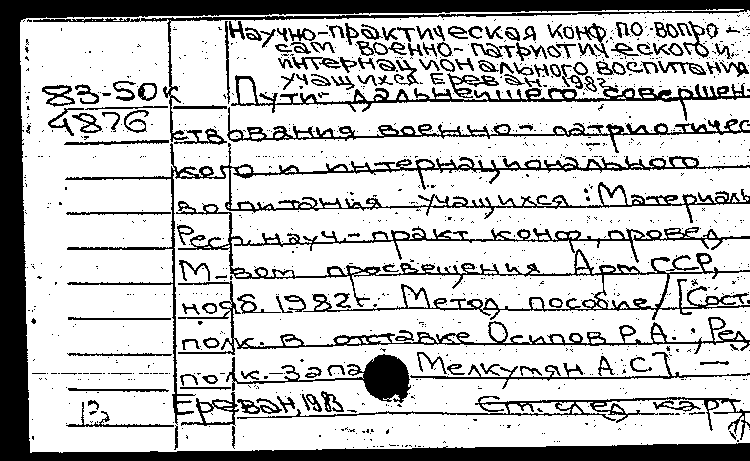 Научно-практическая конф. по вопро-
сам военно-патриотического и
интернационального воспитания
учащихся. Ереван. 1982
83-50к
4876
Пути дальнейшего совершен-
ствования военно-патриотичес
кого и интернационального
воспитания учащихся: Материалы
Респ. науч.-практ. конф., провед.
М-вом просвещения Арм ССР,
нояб. 1982г. Метод. пособие / [Сост.
полк. в отставке Осипов Р.А.; Ред.
полк. запа Мелкумян А.С.]. —
Ереван, 1983.
См. след. карт.
13